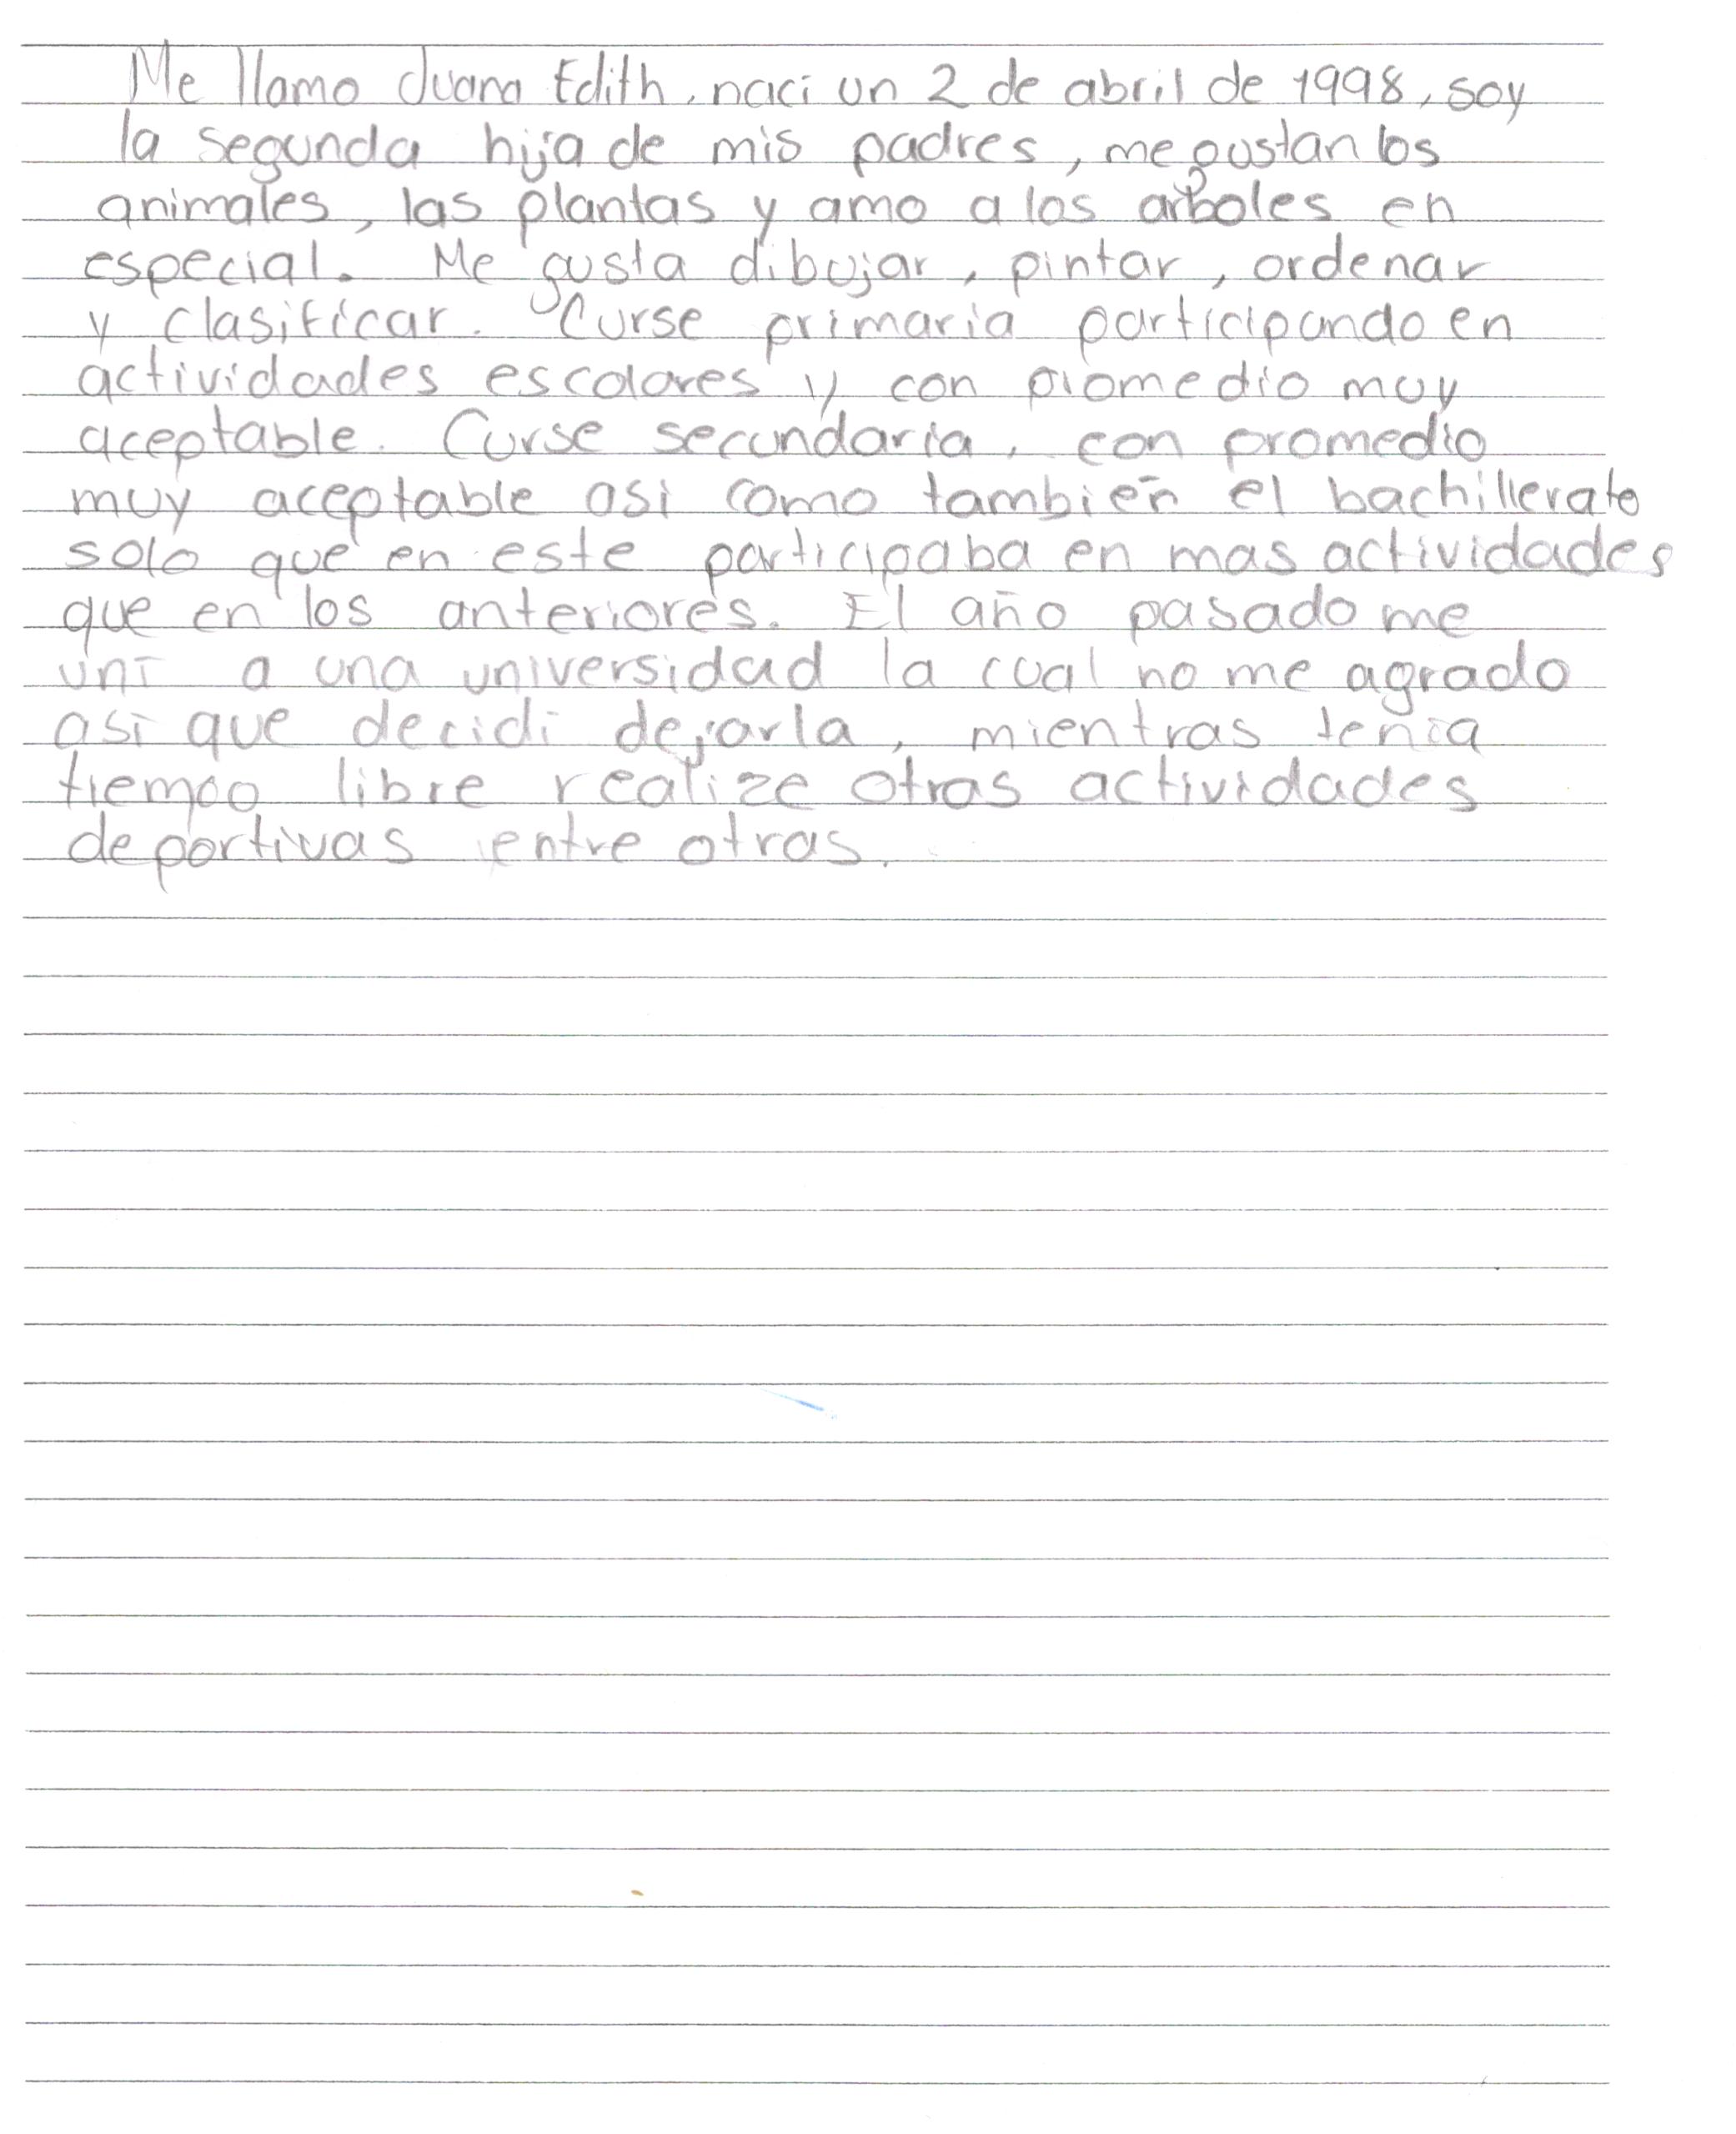 Me llamo Juana Edith, naci un 2 de abril de 1998, soy
la segunda hija de mis padres, me gustan los
animales, las plantas y amo a los arboles en
especial. Me gusta dibujar, pintar, ordenar
y clasificar. Curse primaria participando en
actividades escolares y con promedio muy
aceptable. Curse secundaria, con promedio
muy aceptable asi como también el bachillerato
solo que en este participaba en mas actividades
que en los anteriores. El año pasado me
uni a una universidad la cual no me agrado
asi que decidi dejarla, mientras tenia
tiempo libre realize otras actividades
deportivas entre otras.